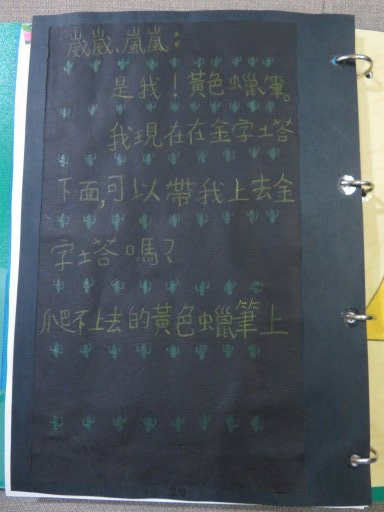 崴崴、嵐嵐：
是我！黃色蠟筆。
我現在在金字塔
下面，可以帶我上去金
字塔嗎？
爬不上去的黃色蠟筆上
20